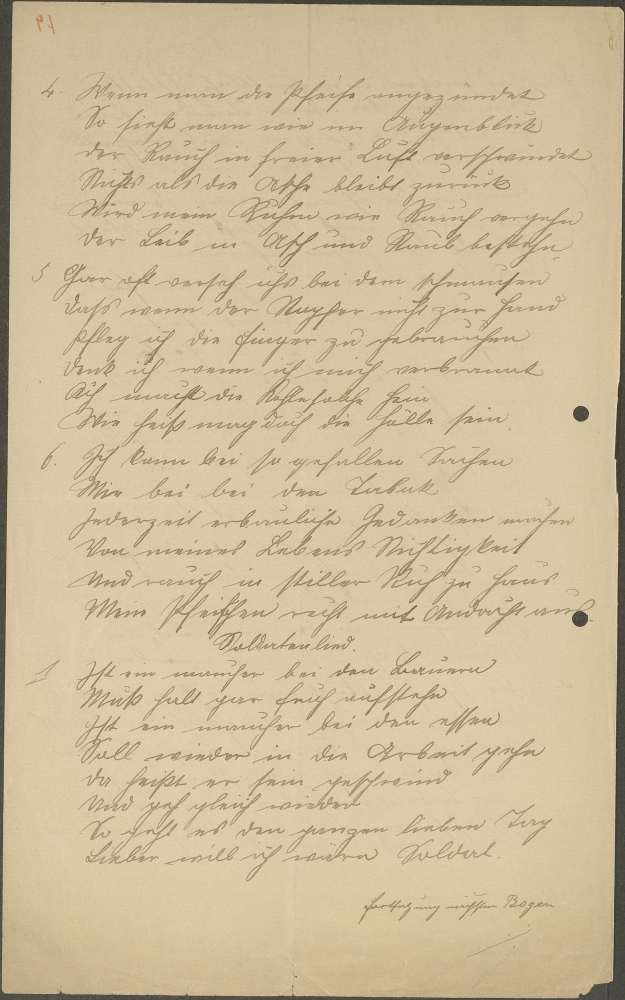 19
4. Wenn man die Pfeife angezündet
So sieht man wie im Augenblick
der Rauch in freier Luft verschwindet
Nichts als die Asche bleibt zurück
Wird mein Ruhm wie Rauch vergehn
Der Leib in Asch und Staub bestehn
5 Gar oft versah ichs bei dem schmausen
dass wenn der Stopfer nicht zur Hand
Pfleg ich die Finger zu gebrauchen
Denk ich wenn ich mich verbrannt
Ach macht die Kohle solche Pein
Wie heiß mag doch die Hölle sein.
6. Ich kann bei so gestallten Sachen
Mir bei bei den Tabak
Jederzeit erbauliche Gedanken machen
Von meines Lebens Nichtigkeit
Und rauch in stiller Ruh zu Haus
Mein Pfeifchen recht mit Andacht aus.
Soldatenlied.
1 Ist ein mancher bei den Bauern
Muß halt gar früh aufstehn
Ist ein mancher bei den essen
Soll wieder in die Arbeit gehn
da heißt es sein geschwind
Und geh gleich wieder
So geht es den ganzen lieben Tag
Lieber will ich wärn Soldat.
Fortsetzung nächsten Bogen